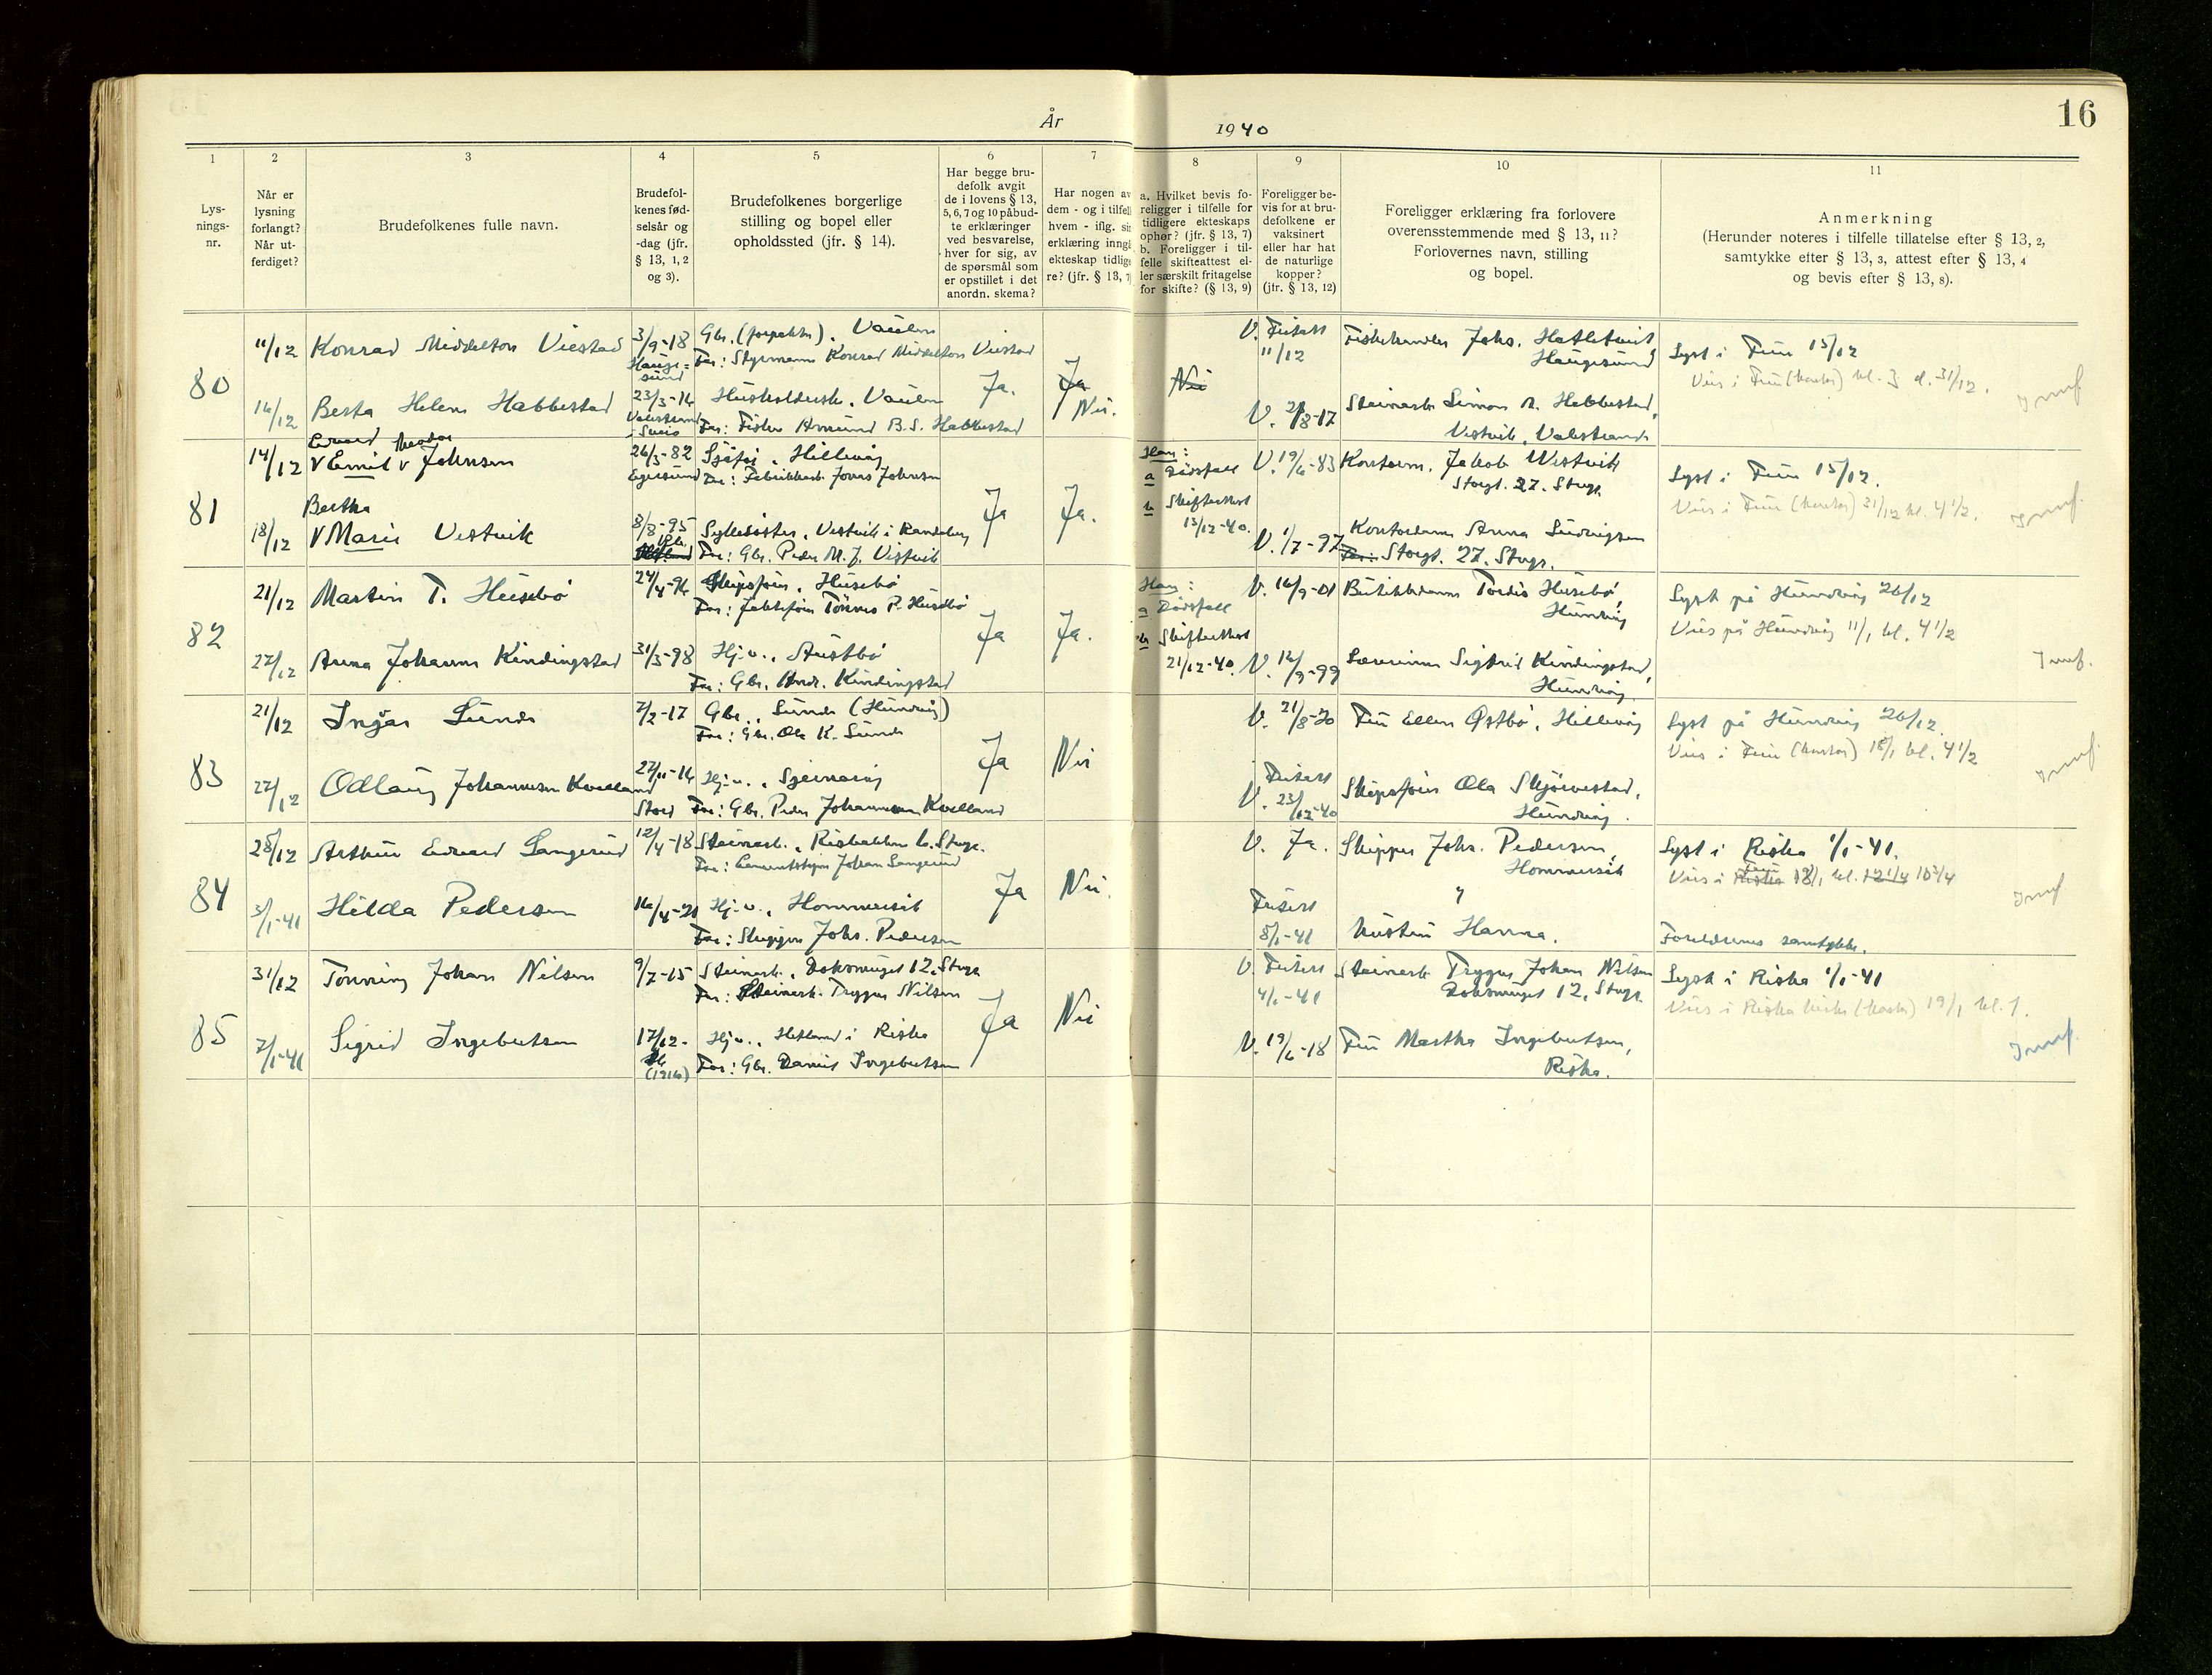 År 1940
16
1
2
3
4
5
6
7
8
9
10
11
Lys-
nings-
nr.
Når er
lysning
forlangt?
Når ut-
ferdiget?
Brudefolkenes fulle navn.
Brudefol-
kenes fød-
selsår og
-dag (jfr.
§ 13, 1, 2
og 3).
Brudefolkenes borgerlige
stilling og bopel eller
opholdssted (jfr. § 14).
Har begge bru-
defolk avgit
de i lovens § 13,
5, 6, 7 og 10 påbud-
te erklæringer
ved besvarelse,
hver for sig, av
de spørsmål som
er opstillet i det
anordn. skema?
Har nogen av
dem - og i tilfell
hvem - iflg. sin
erklæring inngå
ekteskap tidlige
re? (jfr. § 13, 7)
a. Hvilket bevis fo-
religger i tilfelle for
tidligere ekteskaps
ophør? (jfr. § 13, 7)
b. Foreligger i til-
felle skifteattest el-
ler særskilt fritagelse
for skifte? (§ 13, 9)
Foreligger be-
vis for at bru-
defolkene er
vaksinert
eller har hat
de naturlige
kopper?
(jfr. § 13, 12)
Foreligger erklæring fra forlovere
overensstemmende med § 13, 11?
Forlovernes navn, stilling
og bopel.
Anmerkning
(Herunder noteres i tilfelle tillatelse efter § 13, 2,
samtykke efter § 13, 3, attest efter § 13, 4
og bevis efter § 13, 8).
80
11/12
Konrad Middelton Viestad
3/9-18
Hauge-
sund
Gbr. (forpakter), Vaulen
Far: Styrmann Konrad Middelton Viestad
16/12
Berta Helene Habbestad
23/3-14
Husholdersk., Vaulen
Far: Fisker Amund B.S. Habbestad
Ja.
Ja
Nei.
Nei
V. Fritatt
11/12
V. 2/8-17
Fiskehandler Johs. Hatletveit
Haugesund
Steinarb. Simon A. Habbestad,
Vestvik, Valestrand
Lyst i Frue 15/12
Vies i Frue (kontor) kl. 3 d. 31/12.
81
14/12
Edvard
V Emil V Johnsen
26/3-82
Egersund
Sjåfør, Hillevåg
Far: Fabrikkarb. Jonas Johnsen
18/12
Bertha
V Marie Vestvik
8/8-95
Sykesøster, Vestvik i Randaberg
Far: Gbr. Peder M. J. Vestvik
Ja
Ja.
Han:
a Dødsfall
b Skifteattest
13/12-40.
V. 19/6-83
V. 1/7-97
Kontorm. Jakob Westvik
Storgt. 27. Stvgr.
Kontordame Anna Ludvigsen
Far: Storgt. 27. Stvgr.
Lyst i Frue 15/12.
Vies i Frue (kontor) 21/12 kl. 4 1/2.
82
21/12
Martin T. Husebø
24/4-94
Skipsfører, Husebø
Far: Jaktefører Tønnes P. Husebø
27/12
Anna Johanne Kindingstad
31/3-98
Hj.v., Austbø
Far: Gbr. Andr. Kindingstad
Ja
Ja.
Han:
a Dødsfall
b Skifteattest
21/12-40.
V. 16/9-01
V. 16/9-99
Butikkdame Tordis Husebø,
Hundvåg
Lærerinne Sigfrid Kindingstad,
Hundvåg.
Lyst på Hundvåg 26/12
Vies på Hundvåg 11/1 kl. 4 1/2
83
21/12
Ingar Lunde
7/2-17
Gbr., Lunde (Hundvåg)
Far: Gbr. Ole K. Lunde
27/12
Odlaug Johannesen Kvelland
27/11-14
Stord
Hj.v., Sjernarøy
Far: Gbr. Peder Johannesen Kvelland
Ja
Nei
V. 21/8-20
Fritatt
V. 23/12-40
Fru Ellen Østbø, Hillevåg
Skipsfører Ola Skjørestad,
Hundvåg.
Lyst på Hundvåg 26/12.
Vies i Frue (kontor) 18/1 kl. 4 1/2
84
28/12
Arthur Edvard Langerud
12/4-18
Steinarb., Risbakken 6. Stvgr.
Far: Johan Langerud
3/1-41
Hilda Pedersen
16/4-21
Hj.v., Hommersåk
Far: Skipper Johs. Pedersen
Ja
Nei.
V. Ja.
Fritatt
8/1-41
Skipper Johs. Pedersen,
Hommersåk
"
Hustru Hanna.
Lyst i Riska 1/1-41.
Vies i Riska Frue 18/1 kl. 12 1/4 10 3/4
Foreldrenes samtykke.
85
31/12
Tønning Johan Nilsen
9/7-15
Steinarb., Doksmuget 12, Stvgr
Far: Steinarb. Trygve Nilsen
7/1-41
Sigrid Ingebretsen
17/12-
(1916)
Hj.v., Hetland i Riska
Far: Gbr. Daniel Ingebretsen
Ja
Nei
V. Fritatt
4/1-41
V. 19/6-18
Steinarb. Trygve Johan Nilsen
Doksmuget 12, Stvgr.
Fru Martha Ingebretsen,
Riska.
Lyst i Riska 1/1-41
Vies i Riska kirke (kontor) 19/1 kl. 1.